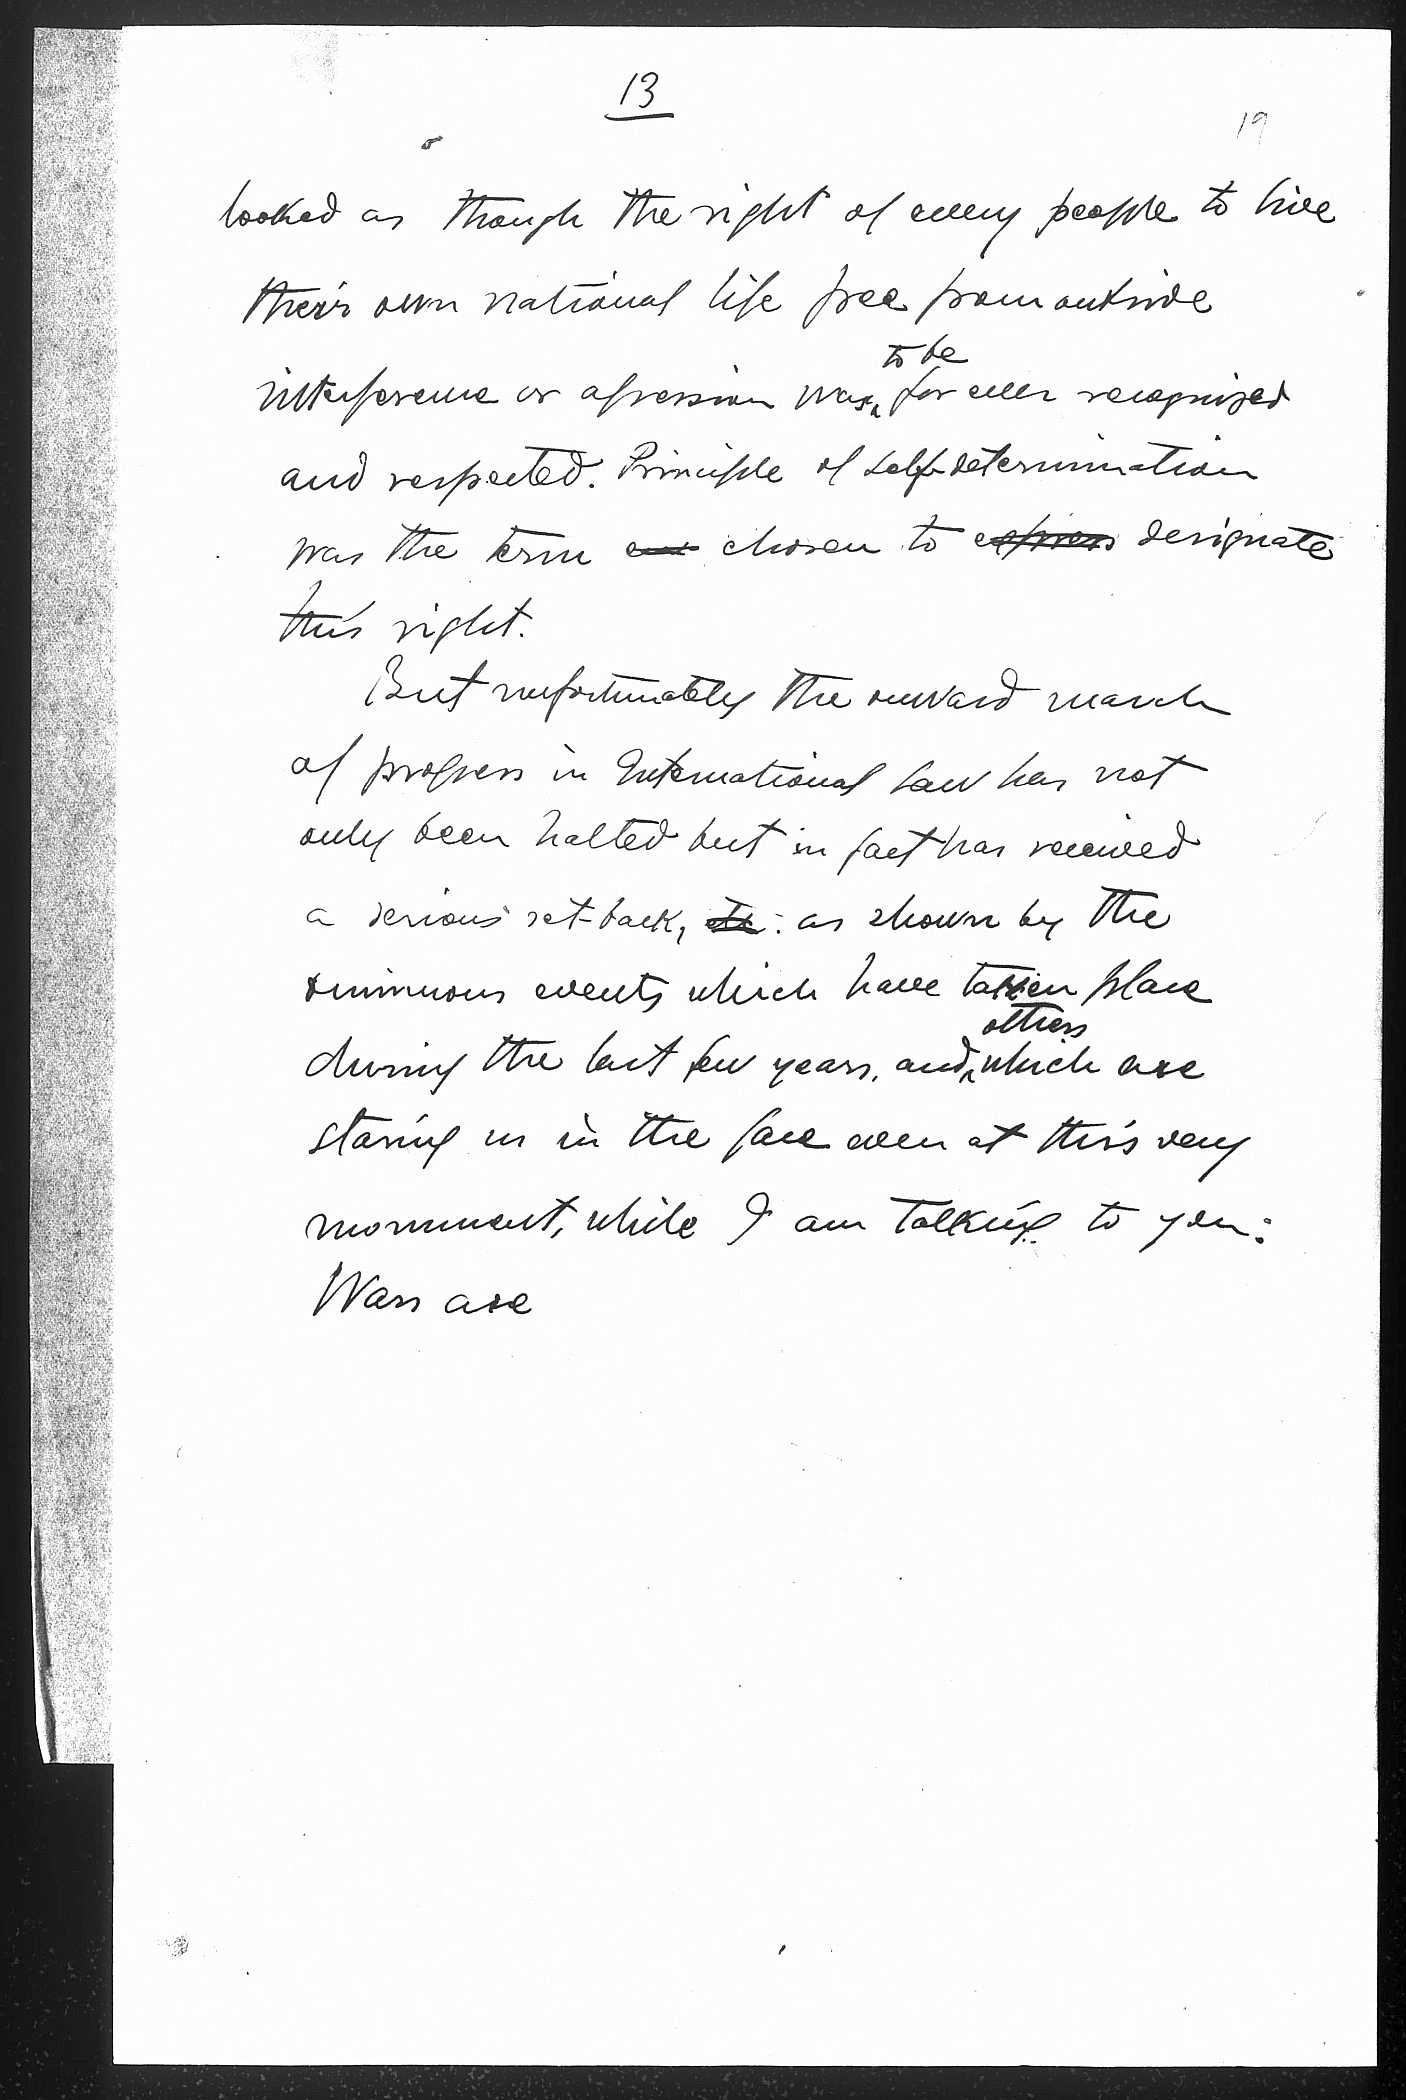 13
19
looked as though the right of every people to live
their own national life free from outside
to be
interference or agression was for ever recognized
and respected. Principle of self-determination
was the term chosen to express designate
this right.
But unfortunately the onward march
of progress in International Law has not
only been halted but in fact has received
a serious set-back, as shown by the
ominuous events which have taken place
others
during the last few years, and which are
staring us in the face even at this very
momment, while I am talking to you:
Wars are